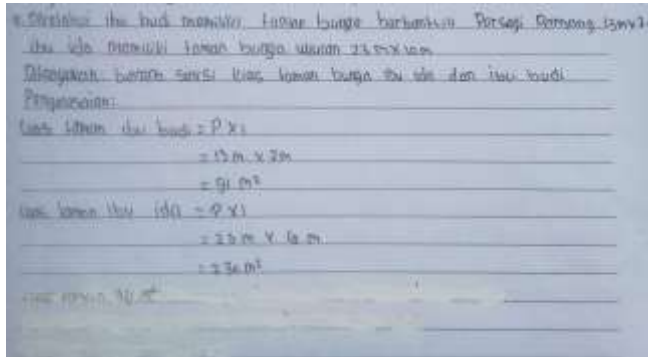 Diketahui ibu budi memiliki taman bunga berbentuk Persegi Panjang 13m x 7
ibu ida memiliki taman bunga ukuran 23 m x 10m
Ditanyakan: berapa selisi luas taman bunga ibu ida dan ibu budi
Penyelesaian:
Luas taman ibu budi = P x l
= 13 m x 7m
= 91 m²
Luas taman ibu ida = P x l
= 23 m x 10 m
= 230 m²